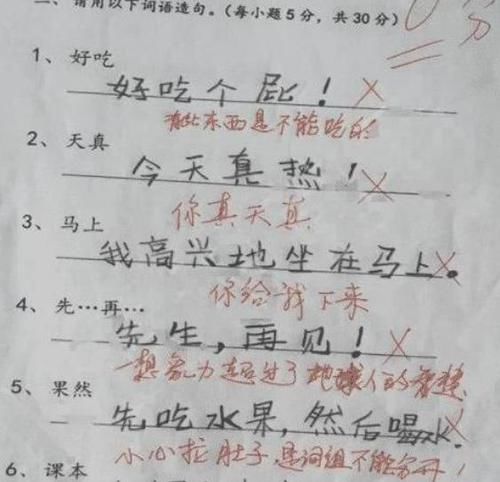 二、请用以下词语造句。(每小题5分，共30分) 0分
1、好吃
好吃个屁！×
有些东西是不能吃的
2、天真
今天真热！×
你真天真
3、马上
我高兴地坐在马上。×
你给我下来
4、先…再…
先生，再见！×
想象力超过了地球人的智慧
5、果然
先吃水果，然后喝水。×
小心拉肚子，是词组不能分开！
6、课本